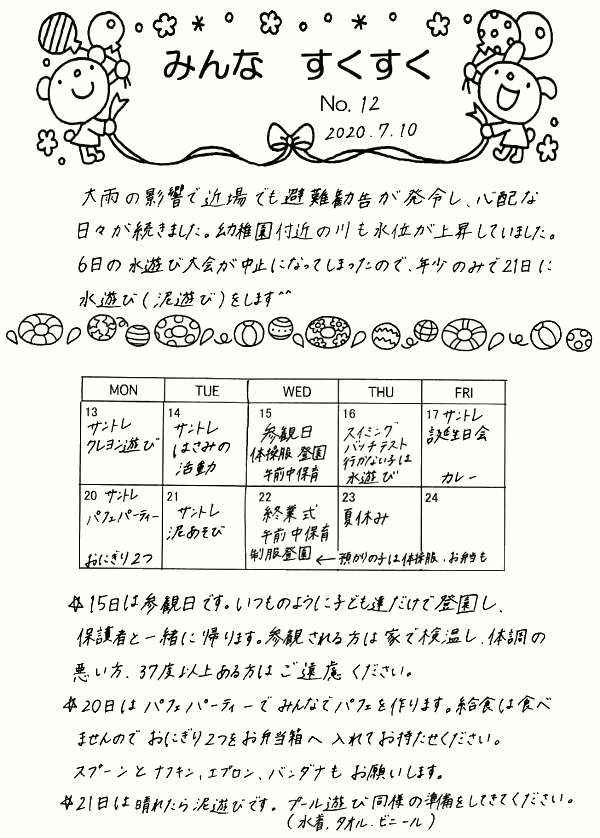 みんな すくすく
No. 12
2020.7.10
大雨の影響で近場でも避難勧告が発令し、心配な
日々が続きました。幼稚園付近の川も水位が上昇していました。
6日の水遊び大会が中止になってしまったので、年少のみで21日に
水遊び(泥遊び)をします^^
MON TUE WED THU FRI
13
サントレ
クレヨン遊び
14
サントレ
はさみの
活動
15
参観日
体操服 登園
午前中保育
16
スイミング
バッチテスト
行かない子は
水遊び
17 サントレ
誕生日会
カレー
20 サントレ
パフェパーティー
おにぎり2つ
21
サントレ
泥あそび
22
終業式
午前中保育
制服登園 ← 預かりの子は体操服、お弁当も
23
夏休み
24
☆15日は参観日です。いつものように子ども達だけで登園し、
保護者と一緒に帰ります。参観される方は家で検温し、体調の
悪い方、37度以上ある方はご遠慮ください。
☆20日はパフェパーティーでみんなでパフェを作ります。給食は食べ
ませんのでおにぎり2つをお弁当箱へ入れてお持たせください。
スプーンとナフキン、エプロン、バンダナもお願いします。
☆21日は晴れたら泥遊びです。プール遊び同様の準備をしてきてください。
(水着、タオル、ビニール)